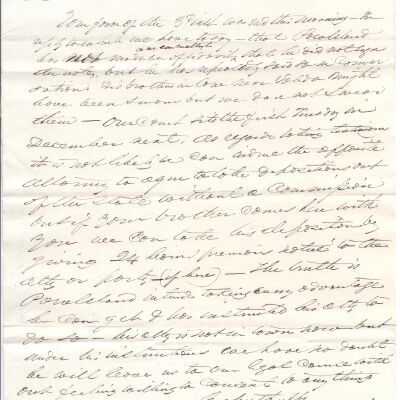 Your favor of the 3rd Inst was recd this morning - In
reply to same we have to say - that Powelaland
has made an affidavit, that he did not sign
the note, but he has repeatedly said so in conver
sations. His brother in law
have been sworn but we do not swear
them - Our Court sits the first Tuesday in
December next, As regards taking testimony
it is not likely we can induce the opposite
Attorney to agree to take depositions out
of the State without a Commission
but if your brother comes here with
you we can take his deposition by
giving 24 hours previous notice to the
atty or party (if here) - The truth is
Powelaland intends taking every advantage
he can get & has instructed his atty to
do so - his atty is not in town now - but
under his instructions we have no doubt
he will leave us to our legal course with
out feeling willing to consent to any thing